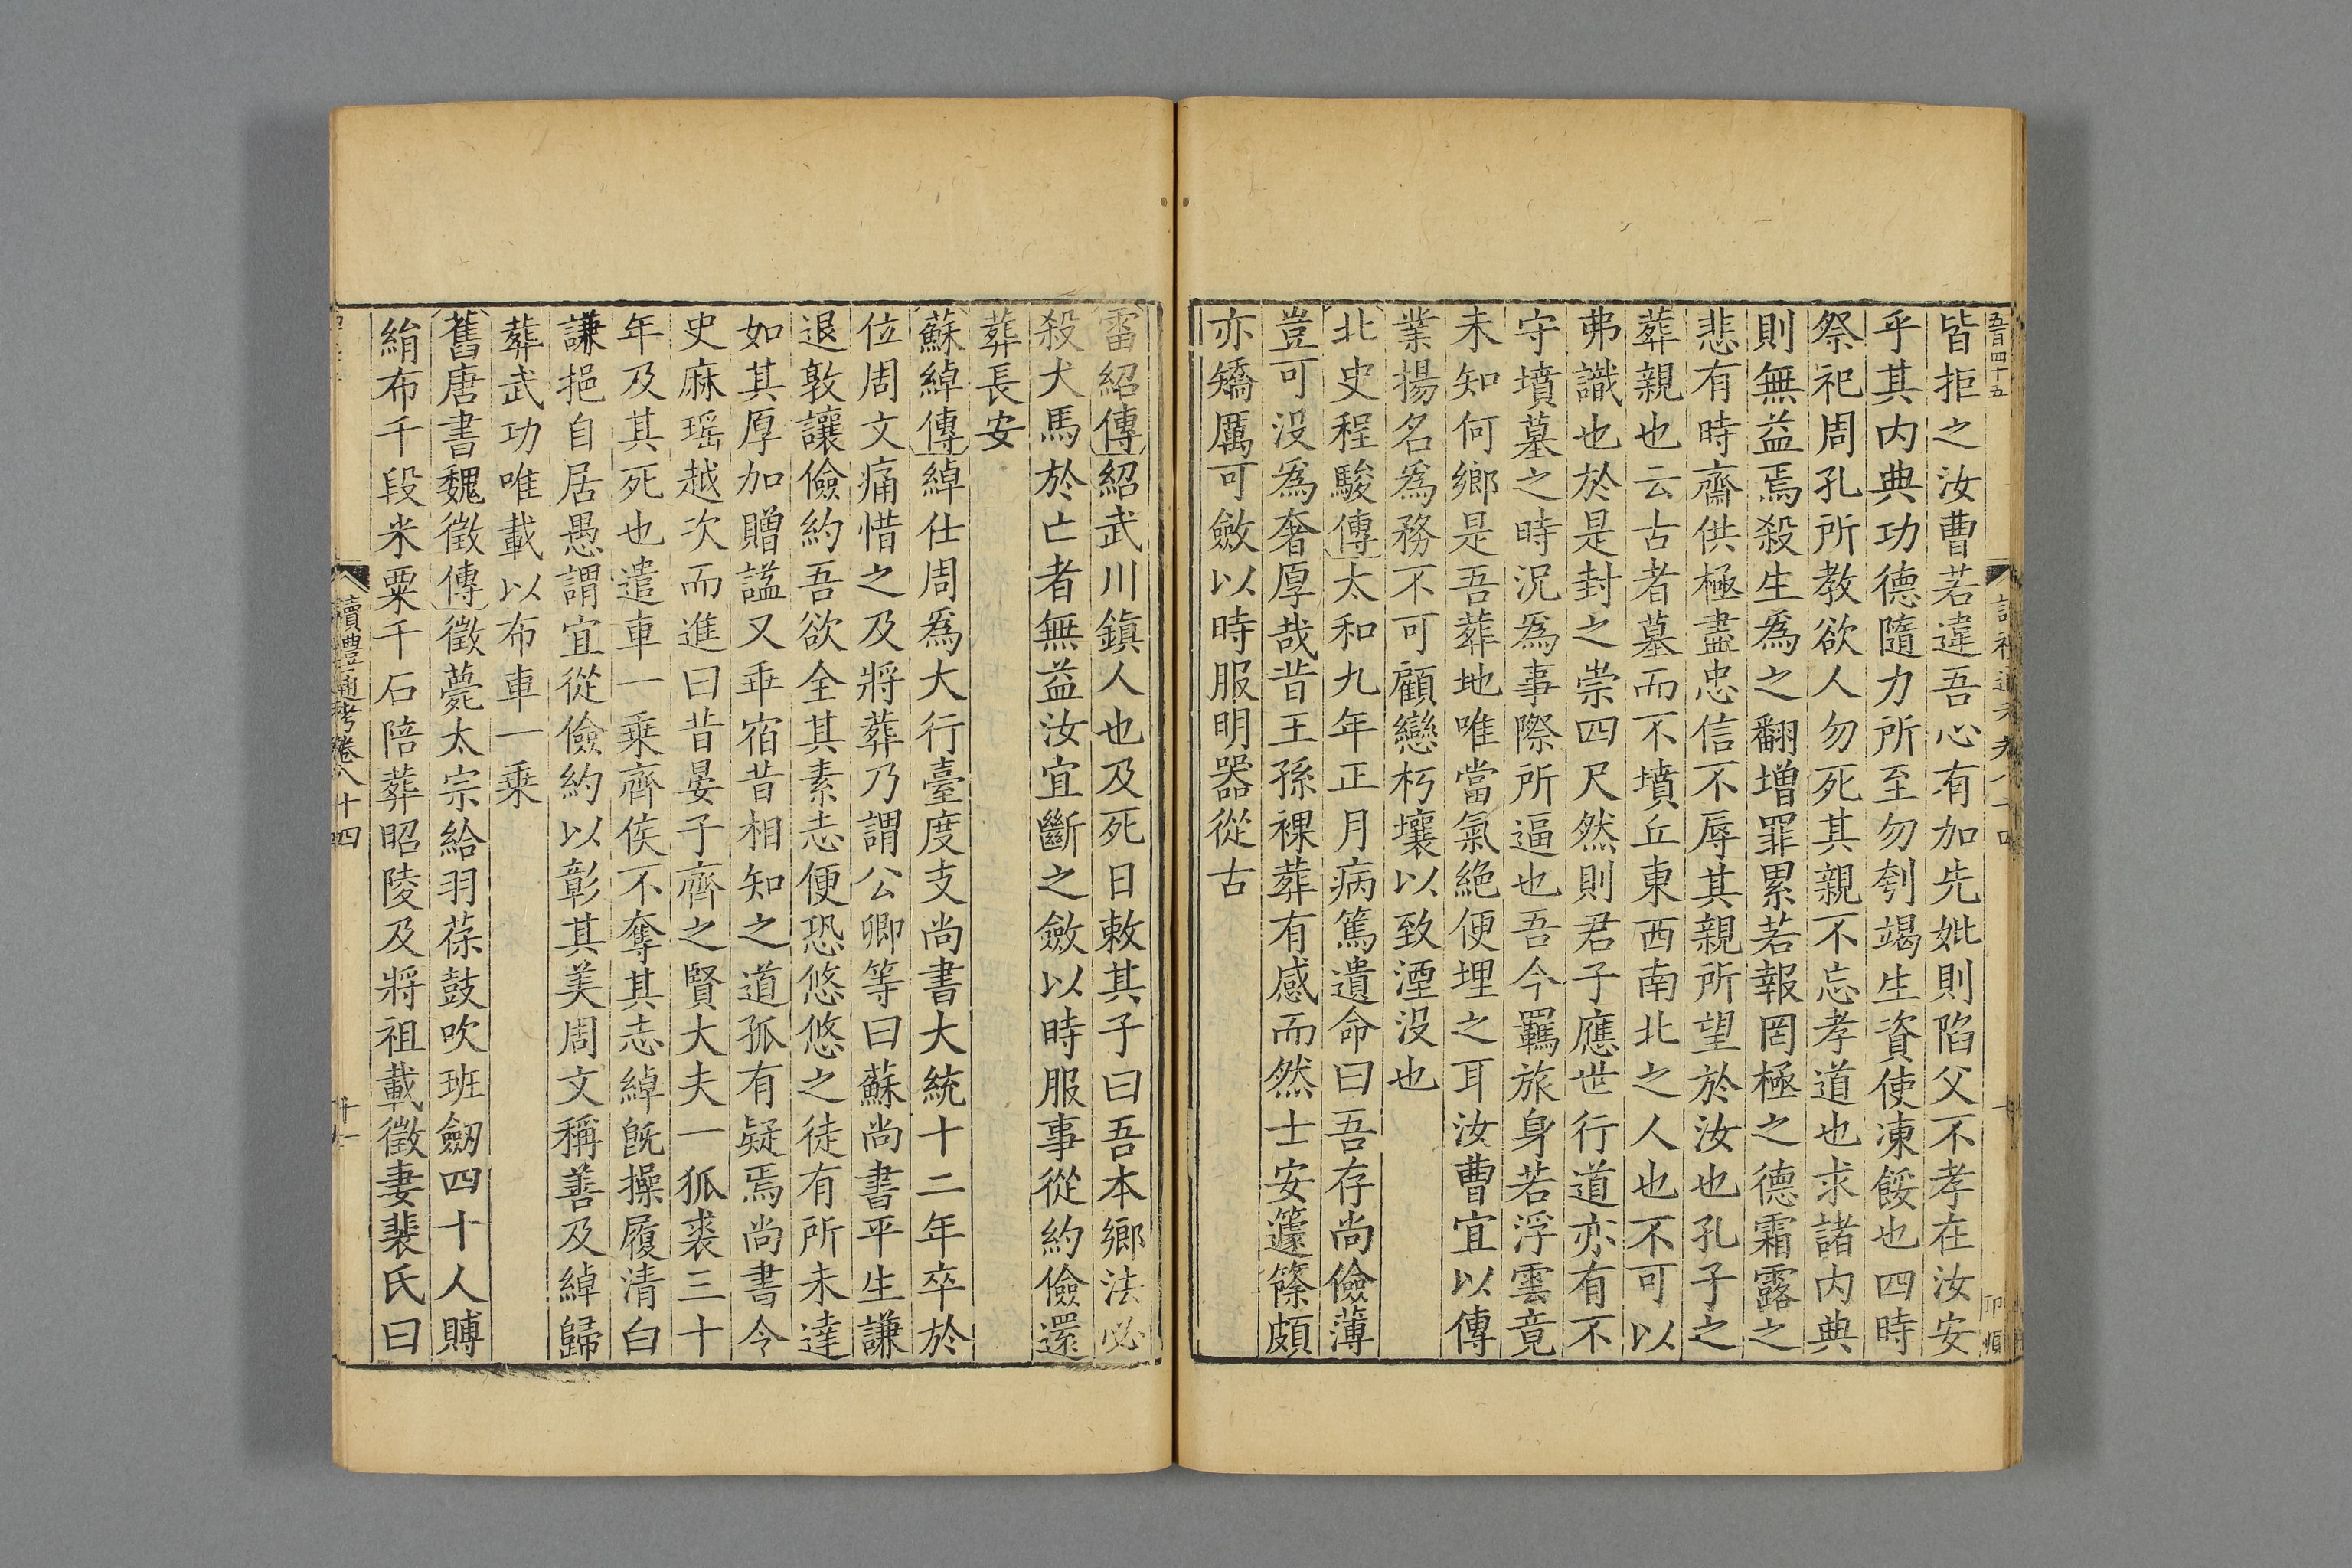 五百四十五
皆拒之汝曹若違吾心有加先妣則陷父不孝在汝安
乎其内典功德隨力所至勿刳竭生資使凍餒也四時
祭祀周孔所教欲人勿死其親不忘孝道也求諸内典
則無益焉殺生爲之翻增罪累若報罔極之德霜露之
悲有時齋供極盡忠信不辱其親所望於汝也孔子之
葬親也云古者墓而不墳丘東西南北之人也不可以
弗識也於是封之崇四尺然則君子應世行道亦有不
守墳墓之時況爲事際所逼也吾今羈旅身若浮雲竟
未知何鄉是吾葬地唯當氣絶便埋之耳汝曹宜以傳
業揚名爲務不可顧戀朽壤以致湮没也
北史程駿傳太和九年正月病篤遺命曰吾存尚儉薄
豈可没爲奢厚哉昔王孫裸葬有感而然士安籧篨頗
亦矯厲可斂以時服明器從古
雷紹傳紹武川鎮人也及死日敕其子曰吾本鄉法必
殺犬馬於亡者無益汝宜斷之斂以時服事從約儉還
葬長安
蘇綽傳綽仕周爲大行臺度支尚書大統十二年卒於
位周文痛惜之及將葬乃謂公卿等曰蘇尚書平生謙
退敦讓儉約吾欲全其素志便恐悠悠之徒有所未達
如其厚加贈謚又乖宿昔相知之道孤有疑焉尚書令
史麻瑶越次而進曰昔晏子齊之賢大夫一狐裘三十
年及其死也遣車一乘齊侯不奪其志綽既操履清白
謙挹自居愚謂宜從儉約以彰其美周文稱善及綽歸
葬武功唯載以布車一乘
舊唐書魏徵傳徵薨太宗給羽葆鼓吹班劔四十人賻
絹布千段米粟千石陪葬昭陵及將祖載徵妻裴氏曰
讀禮通考卷八十四